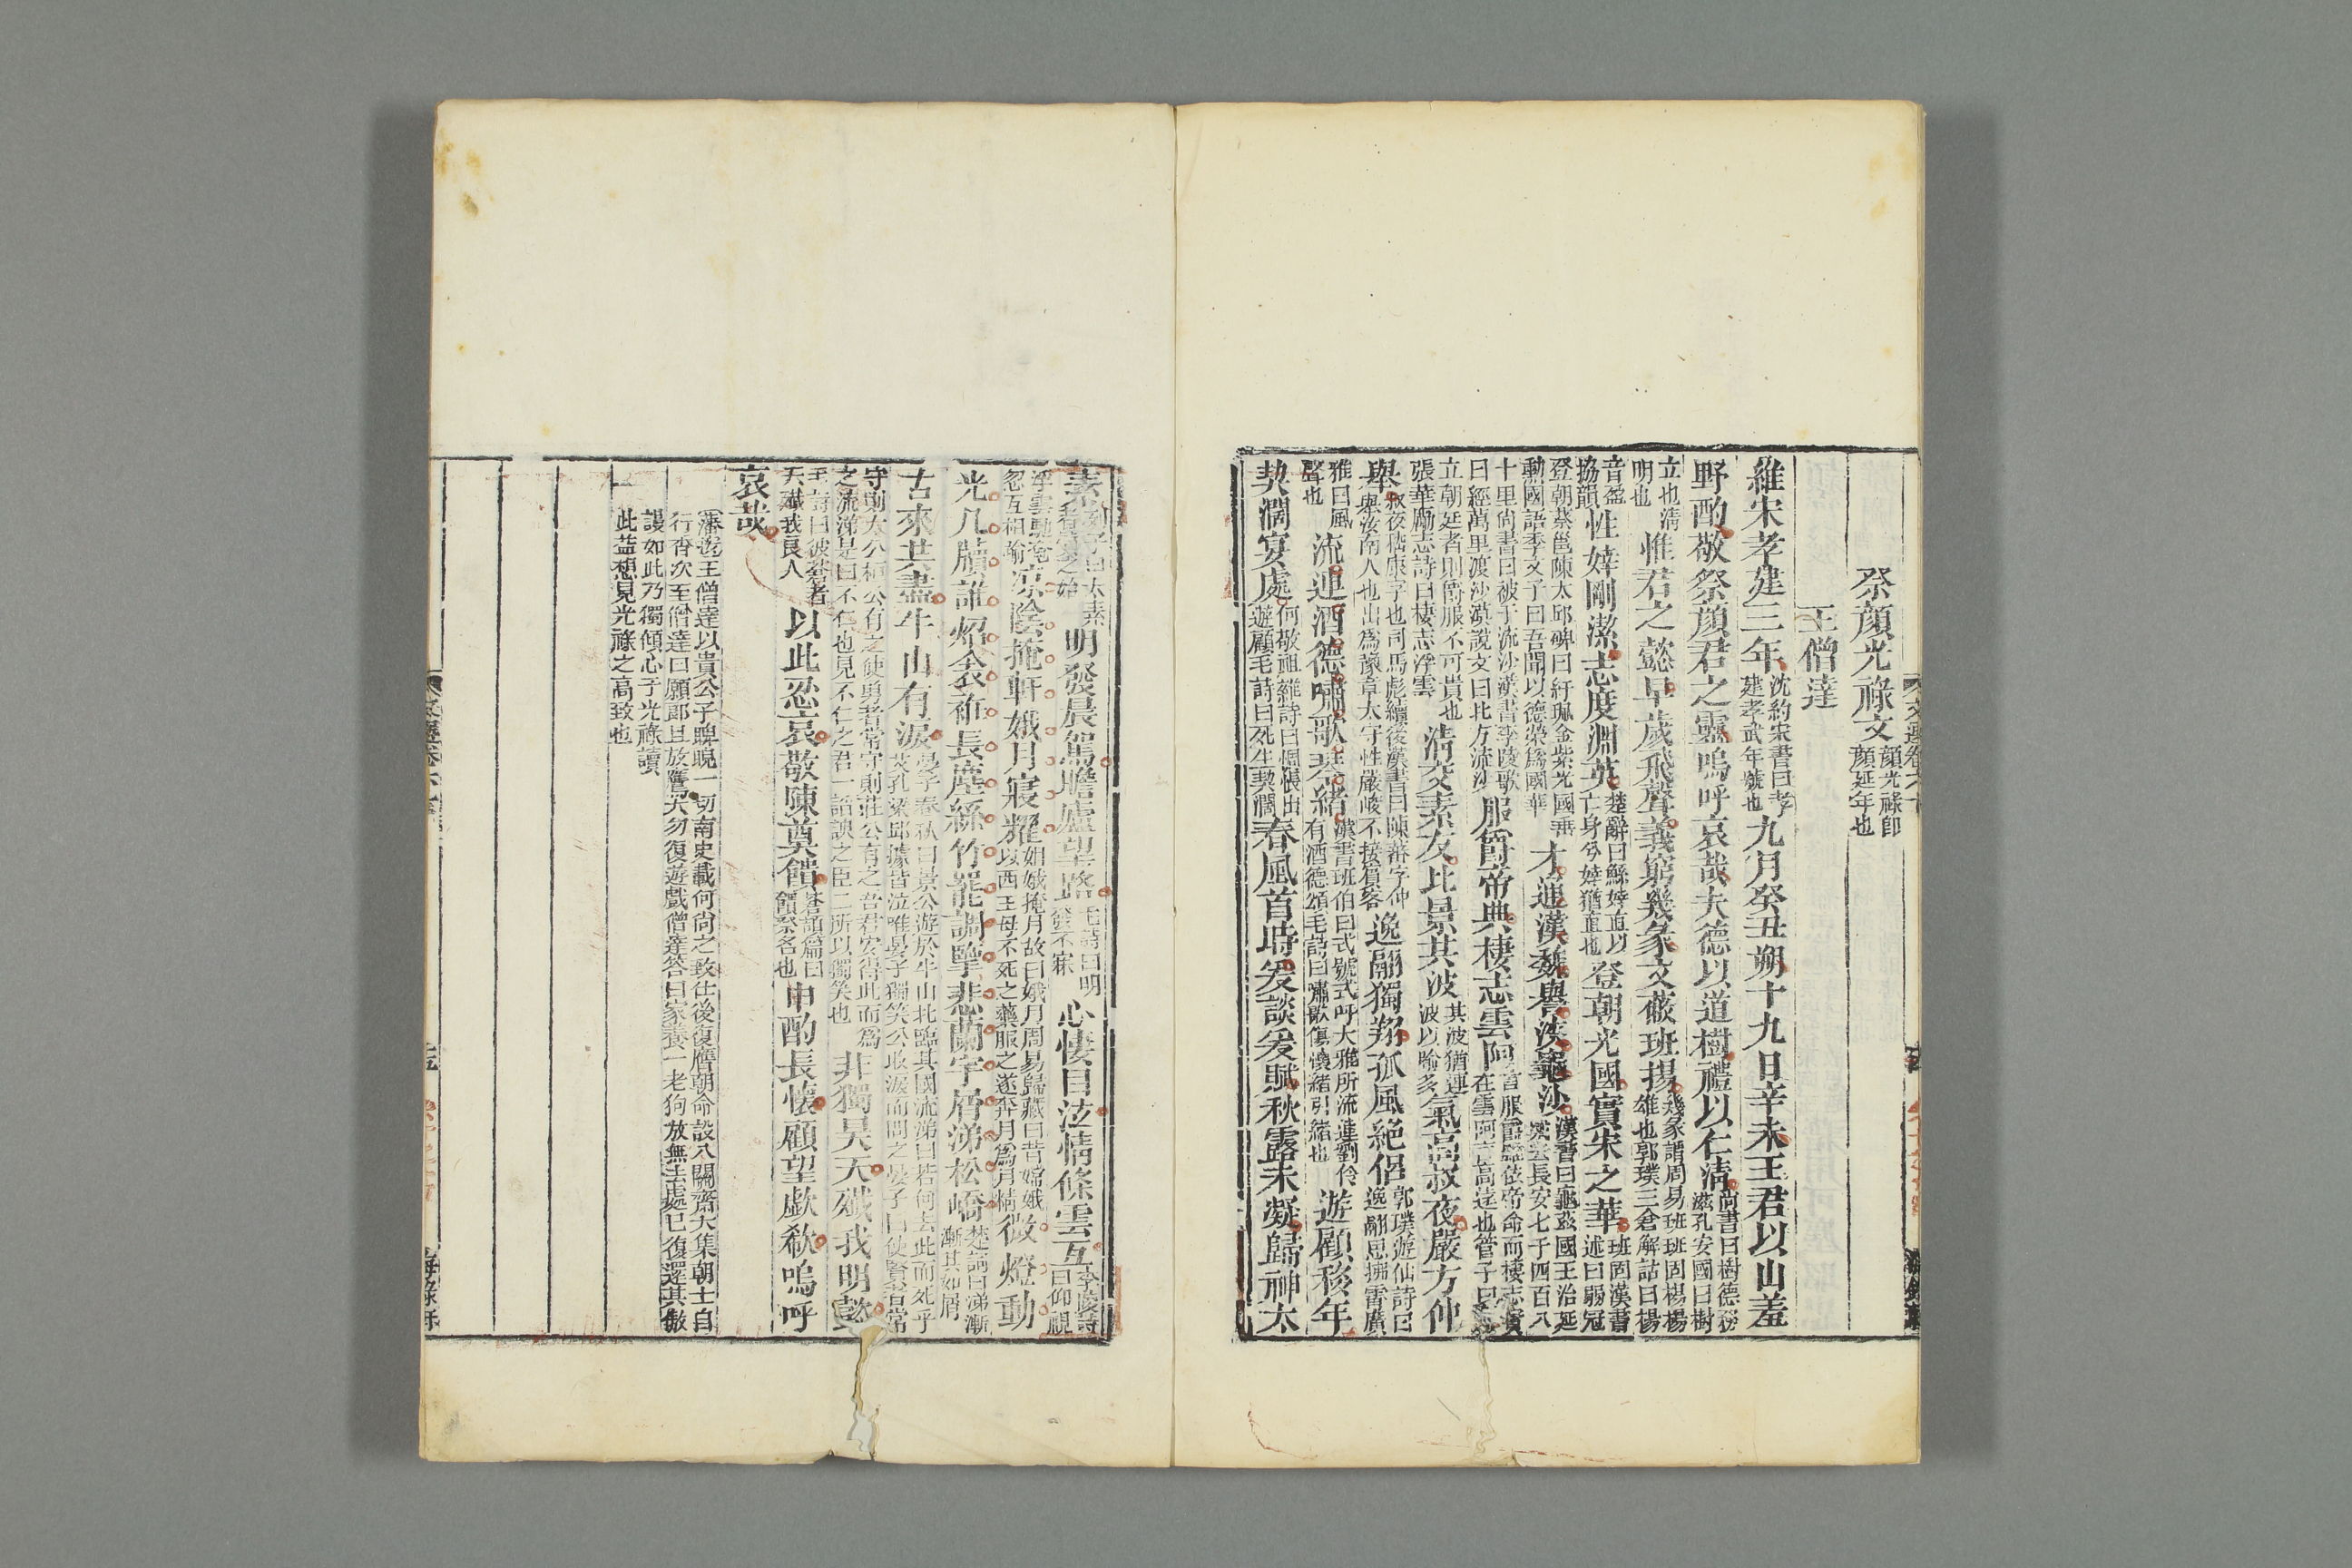 祭顏光祿文顏光祿即顏延年也
王僧達
維宋孝建三年沈約宋書曰孝建孝武年號也九月癸丑朔十九日辛未王君以山羞
野酌敬祭顏君之靈嗚呼哀哉夫德以道樹禮以仁清尚書曰樹德務滋孔安國曰樹
立也清明也惟君之懿早歲飛聲義窮幾彖文蔽班揚幾彖謂周易班班固楊楊雄也郭璞三倉解詁曰楊
音盈協韻性婞剛潔志度淵英楚辭曰鯀婞直以亡身兮婞猶直也登朝光國實宋之華班固漢書述曰弱冠
登朝蔡邕陳太邱碑曰紆珮金紫光國垂動國語季文子曰吾聞以德榮為國華才通漢魏譽浹龜沙漢書曰龜茲國王治延城去長安七千四百八
十里尚書曰被于流沙漢書李陵歌曰經萬里渡沙漠說文曰北方流沙服爵帝典棲志雲阿言服爵雖依帝命而棲志實在雲阿言高遠也管子曰
立朝廷者則爵服不可貴也張華勵志詩曰棲志浮雲清交素友比景共波其波猶連波以喻多氣高叔夜嚴方仲
舉叔夜嵇康字也司馬彪續後漢書曰陳蕃字仲舉汝南人也出為豫章太守性嚴峻不接賓客逸翮獨翔孤風絕侶郭璞遊仙詩曰逸翮思拂霄廣
雅曰風聲也流連酒德嘯歌琴緒漢書班伯曰式號式呼大雅所流連劉伶有酒德頌毛詩曰嘯歌傷懷緒引緒也遊顧移年
契濶宴處何敬祖雜詩曰惆悵出遊顧毛詩曰死生契濶春風首時爰談爰賦秋露未凝歸神太
素列子曰太素者質之始明發晨駕瞻廬望路毛詩曰明發不寐心悽目泫情條雲互李陵詩曰仰視
浮雲馳奄忽互相踰凉陰掩軒娥月寢耀姮娥掩月故曰娥月周易歸藏曰昔嫦娥以西王母不死之藥服之遂奔月為月精微燈動
光几牘誰炤衾衽長塵絲竹罷調擥悲蘭宇屑涕松嶠楚詞曰涕漸漸其如屑
古來共盡牛山有淚晏子春秋曰景公遊於牛山北臨其國流涕曰若何去此而死乎艾孔梁邱據皆泣唯晏子獨笑公收淚而問之晏子曰使賢者常
守則太公桓公有之使勇者常守則莊公有之吾君安得此而為之流涕是曰不仁也見不仁之君一諂諛之臣二所以獨笑也非獨昊天殲我明懿
毛詩曰彼蒼者天殲我良人以此忍哀敬陳奠饋蒼頡篇曰饋祭名也申酌長懷顧望歔欷嗚呼
哀哉
王僧達以貴公子睥睨一切南史載何尚之致仕後復膺朝命設八關齋大集朝士自
行香次至僧達曰願郎且放鷹犬勿復遊戲僧達答曰家養一老狗放無去處已復還其傲
謾如此乃獨傾心于光祿讀
此益想見光祿之高致也